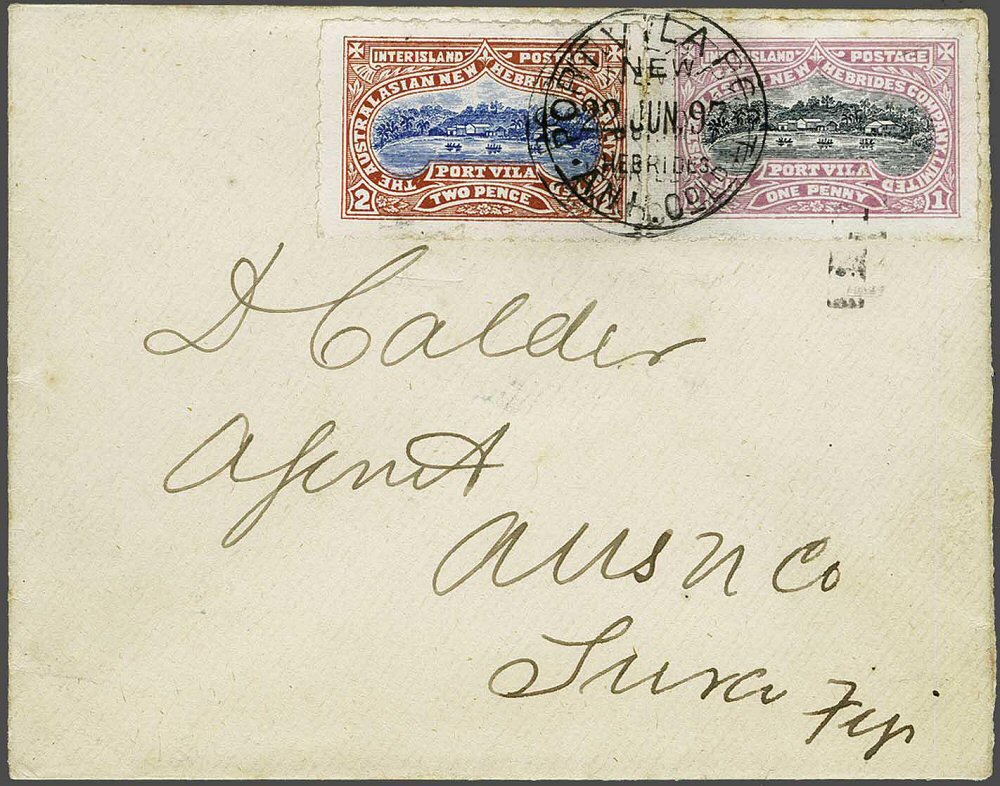 INTERISLAND POSTAGE
THE AUSTRALASIAN NEW HEBRIDES
PORT VILA
2 TWO PENCE
INTERISLAND POSTAGE
NEW HEBRIDES COMPANY, LIMITED
PORT VILA
ONE PENNY 1
PORT VILA
NEW
JUN 97
HEBRIDES
D Calder
Agent
AUSN Co
Suva Fiji